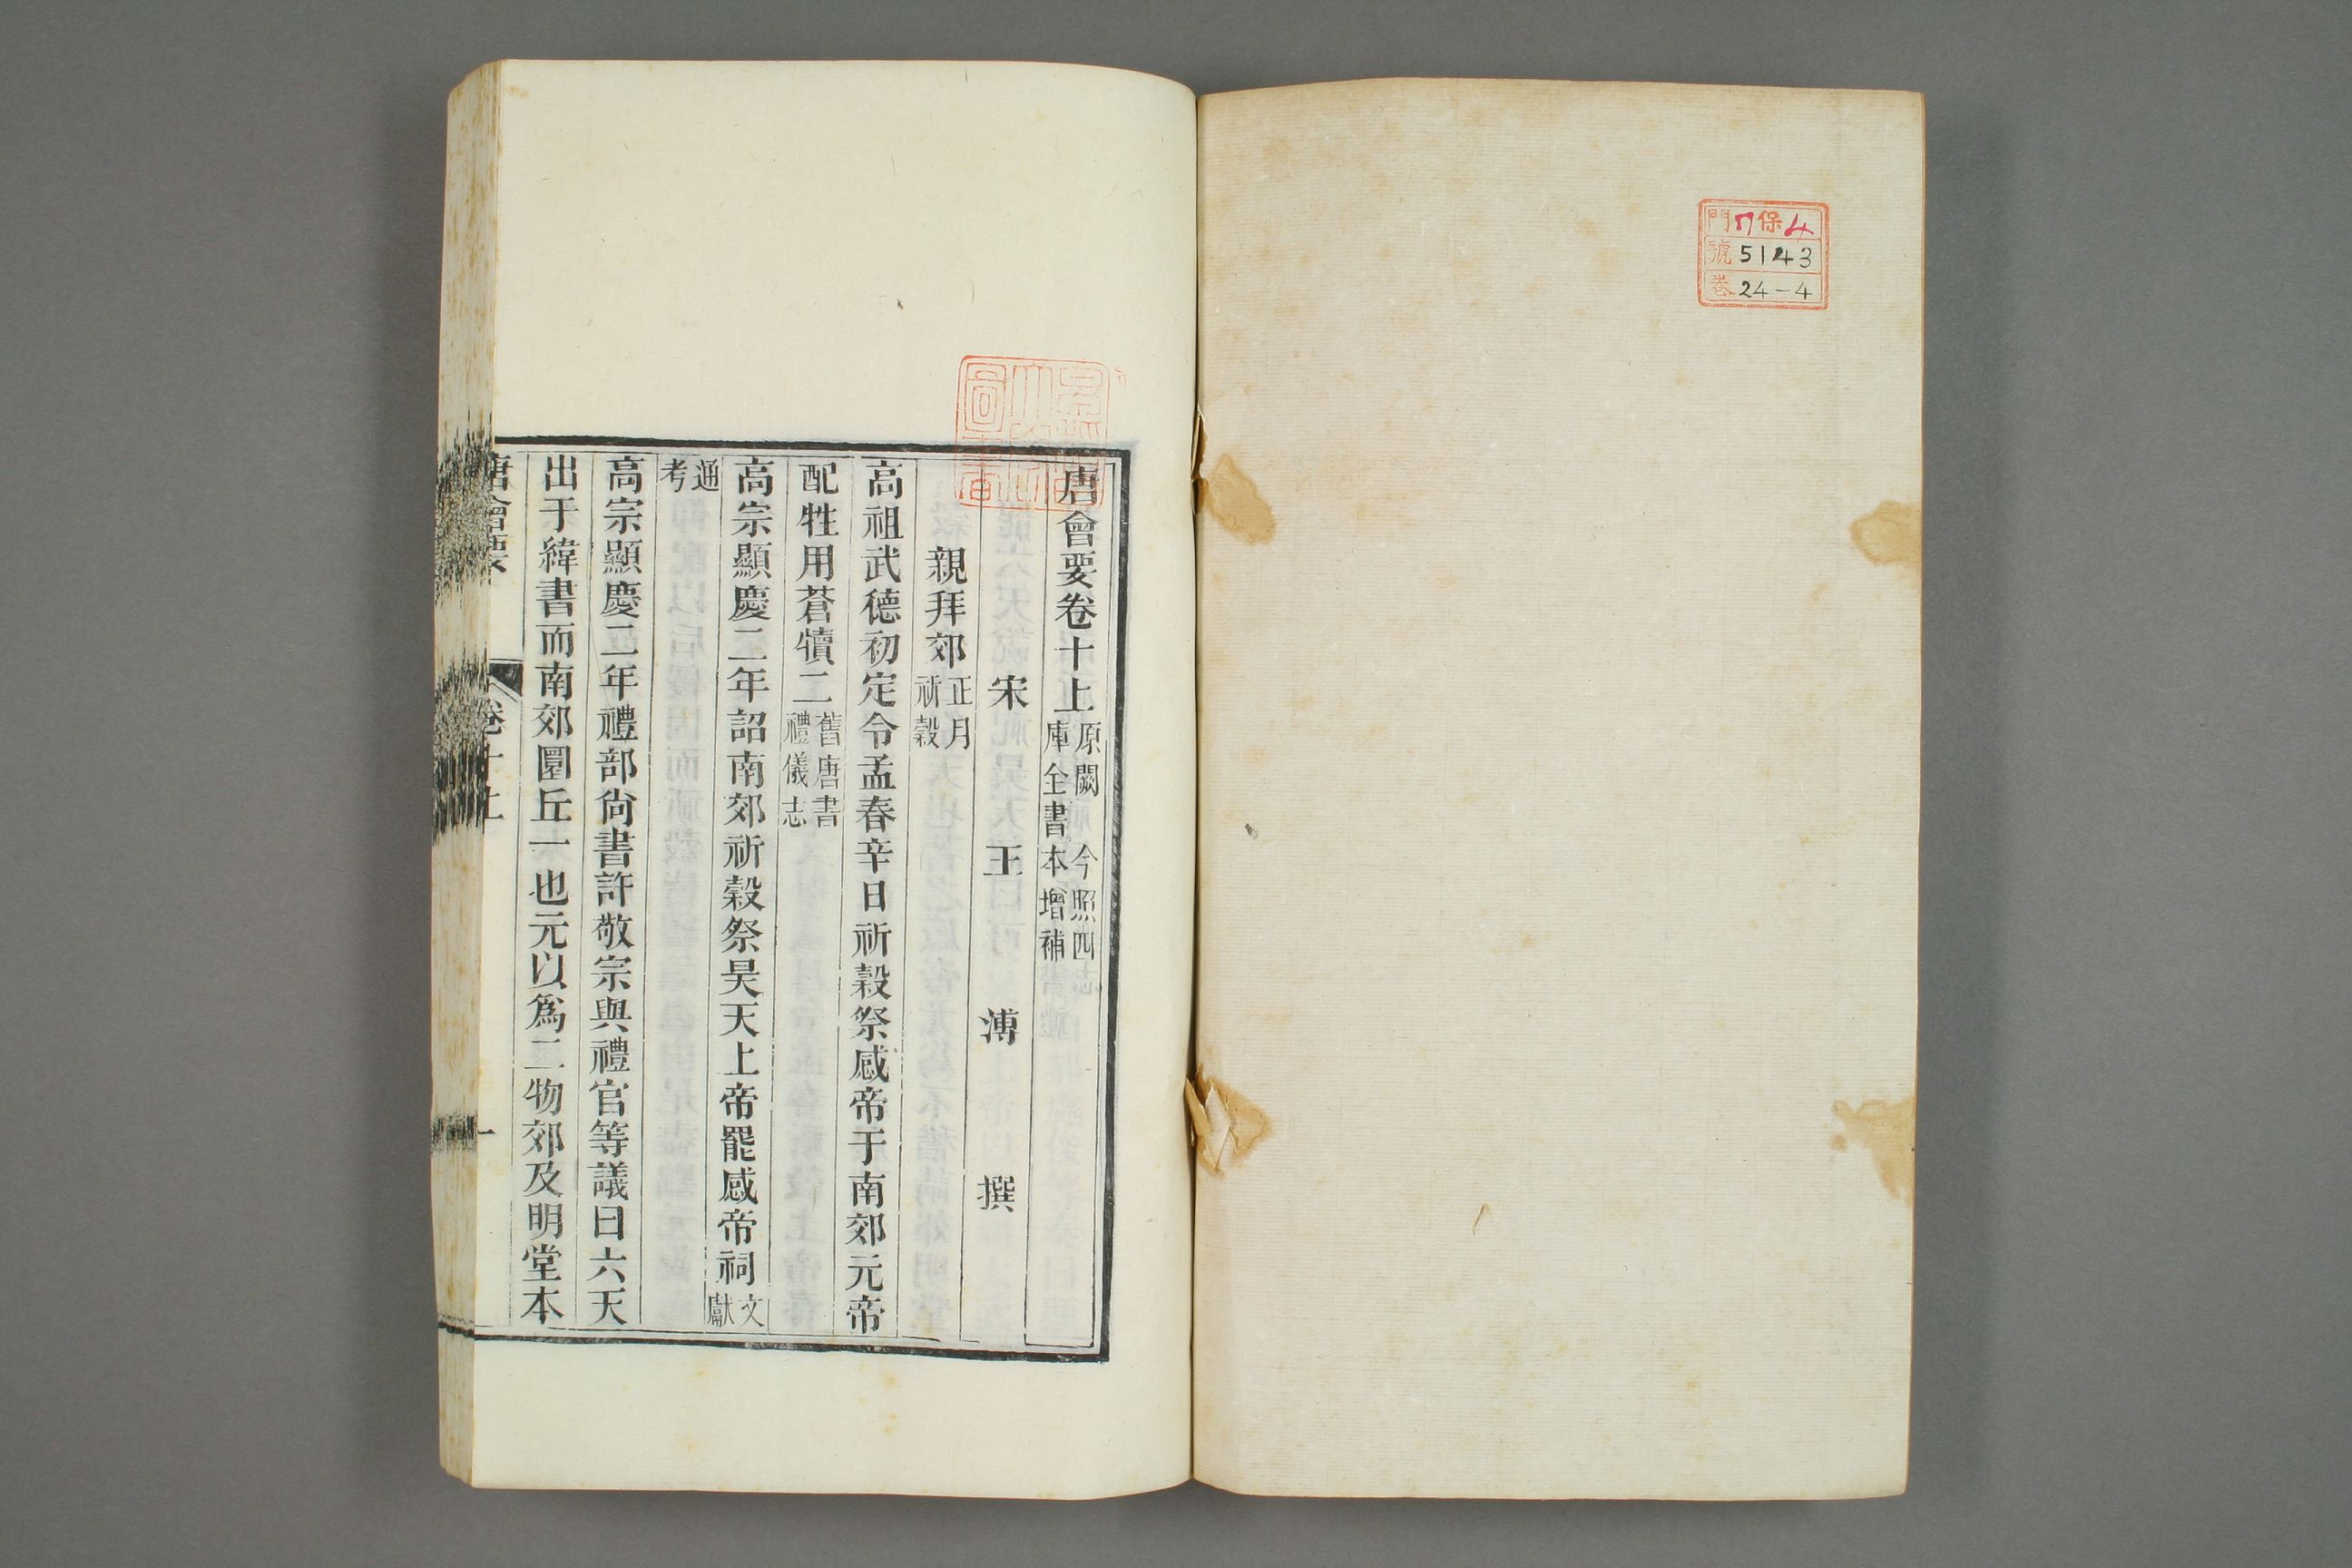 門 ﾘ 保 4
號 5143
巻 24-4
唐會要卷十上原闕今照四庫全書本增補
宋王溥撰
親拜郊正月祈穀
高祖武德初定令孟春辛日祈穀祭感帝于南郊元帝
配牲用蒼犢二舊唐書禮儀志
高宗顯慶二年詔南郊祈穀祭昊天上帝罷感帝祠文獻
通考
高宗顯慶二年禮部尚書許敬宗與禮官等議曰六天
出于緯書而南郊圜丘一也元以爲二物郊及明堂本
唐會要 卷十上 一